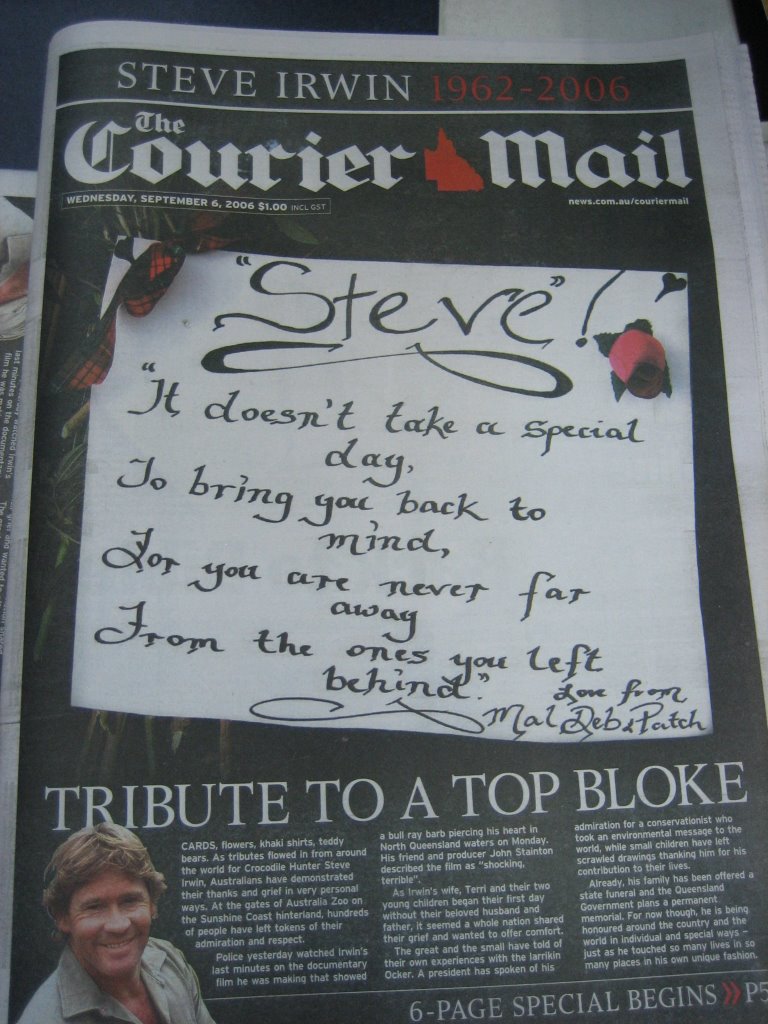 STEVE IRWIN 1962-2006
The Courier Mail
WEDNESDAY, SEPTEMBER 6, 2006 $1.00 INCL GST
news.com.au/couriermail
"Steve"!
"It doesn't take a special
day,
To bring you back to
mind,
For you are never far
away
From the ones you left
behind."
Love from
Mal Deb & Patch
TRIBUTE TO A TOP BLOKE
CARDS, flowers, khaki shirts, teddy
bears. As tributes flowed in from around
the world for Crocodile Hunter Steve
Irwin, Australians have demonstrated
their thanks and grief in very personal
ways. At the gates of Australia Zoo on
the Sunshine Coast hinterland, hundreds
of people have left tokens of their
admiration and respect.
Police yesterday watched Irwin's
last minutes on the documentary
film he was making that showed
a bull ray barb piercing his heart in
North Queensland waters on Monday.
His friend and producer John Stainton
described the film as "shocking,
terrible".
As Irwin's wife, Terri and their two
young children began their first day
without their beloved husband and
father, it seemed a whole nation shared
their grief and wanted to offer comfort.
The great and the small have told of
their own experiences with the larrikin
Ocker. A president has spoken of his
admiration for a conservationist who
took an environmental message to the
world, while small children have left
scrawled drawings thanking him for his
contribution to their lives.
Already, his family has been offered a
state funeral and the Queensland
Government plans a permanent
memorial. For now though, he is being
honoured around the country and the
world in individual and special ways –
just as he touched so many lives in so
many places in his own unique fashion.
6-PAGE SPECIAL BEGINS » P5